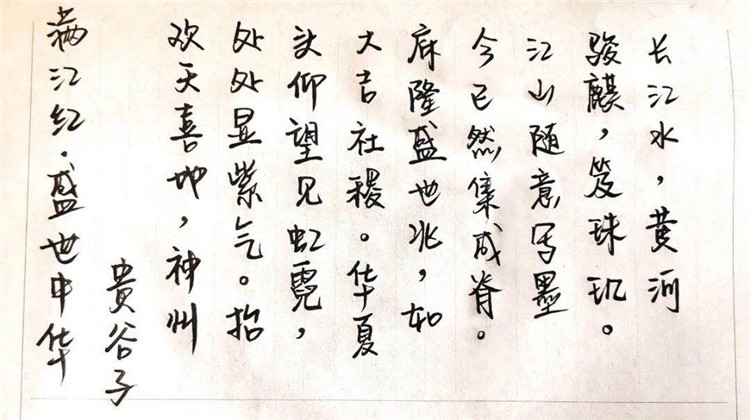 满江红·盛世中华
贵谷子
欢天喜地,神州
处处显紫气。抬
头仰望见虹霓,
大吉社稷。华夏
庥隆盛世兆,如
今已然集成脊。
江山随意写墨
骏麒,笈珠玑。
长江水,黄河